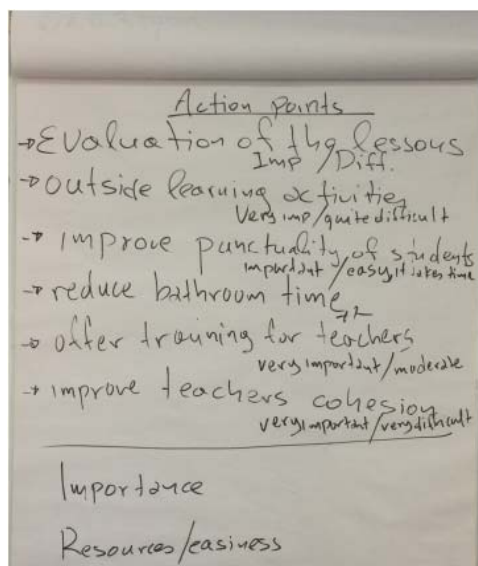 Action points
→ Evaluation of the lessons
Imp / Diff.
→ outside learning activities
Very imp/quite difficult
→ improve punctuality of students
important / easy, it takes time
→ reduce bathroom time
→ offer training for teachers
very important/moderate
→ improve teachers cohesion
very important/very difficult
Importance
Resources/easiness